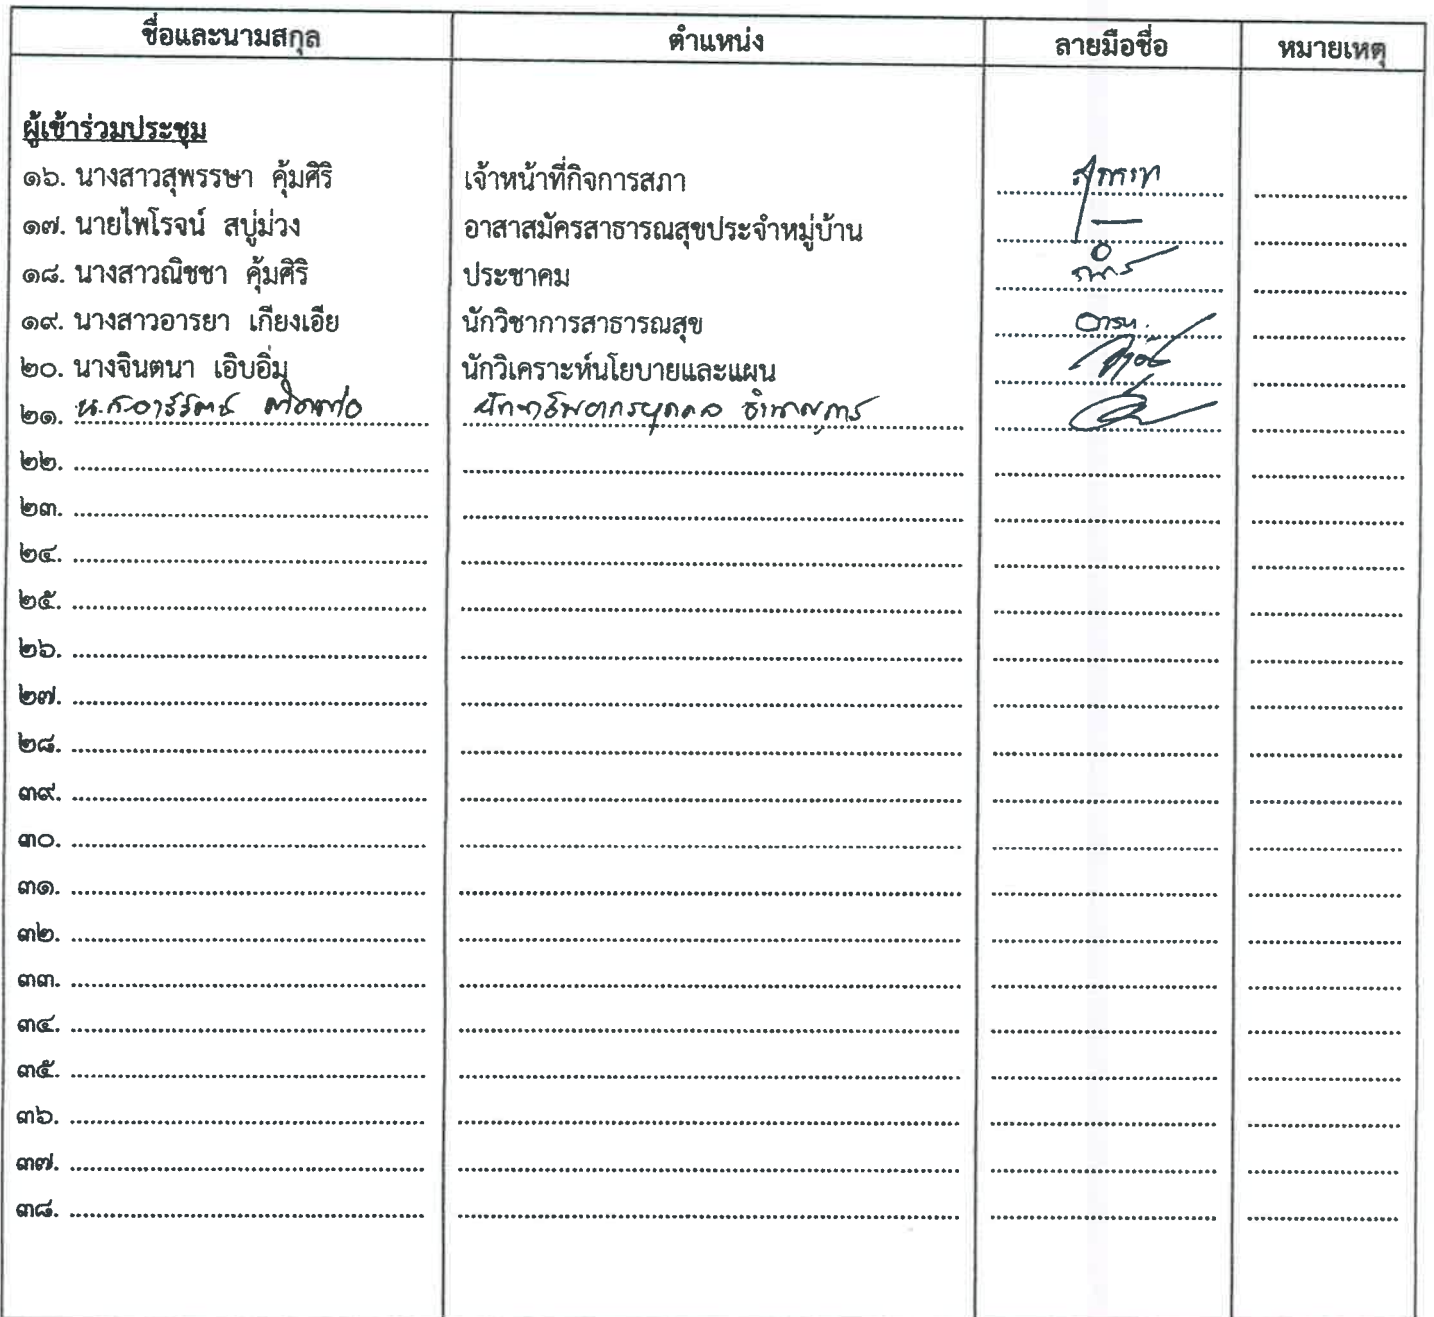 ชื่อและนามสกุล ตำแหน่ง ลายมือชื่อ หมายเหตุ
ผู้เข้าร่วมประชุม
๑๖. นางสาวสุพรรษา คุ้มศิริ เจ้าหน้าที่กิจการสภา
๑๗. นายไพโรจน์ สบู่ม่วง อาสาสมัครสาธารณสุขประจำหมู่บ้าน
๑๘. นางสาวณิชชา คุ้มศิริ ประชาคม
๑๙. นางสาวอารยา เกียงเอีย นักวิชาการสาธารณสุข
๒๐. นางจินตนา เอิบอิ่ม นักวิเคราะห์นโยบายและแผน
๒๑. น.ส.อารีรัตน์ นักทรัพยากรบุคคล ชำนาญการ
๒๒.
๒๓.
๒๔.
๒๕.
๒๖.
๒๗.
๒๘.
๓๙.
๓๐.
๓๑.
๓๒.
๓๓.
๓๔.
๓๕.
๓๖.
๓๗.
๓๘.